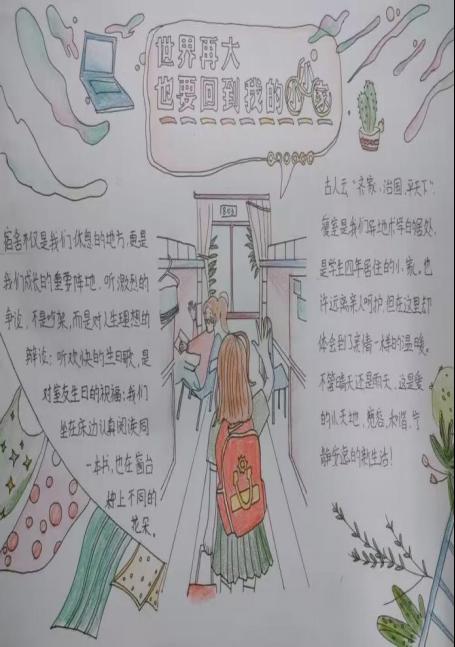 世界再大
也要回到我的小家
宿舍不仅是我们休息的地方,更是
我们成长的重要阵地。听激烈的
争议,不是吵架,而是对人生理想的
辩论;听欢快的生日歌,是
对室友生日的祝福;我们
坐在床边认真阅读同
一本书,也在窗台
种上不同的
花朵。
古人云“齐家、治国、平天下”.
寝室是我们异地求学的居处,
是学生四年居住的小家。也
许远离亲人呵护,但在这里却
体会到了亲情一样的温暖。
不管晴天还是雨天,这是爱
的小天地,勉励、和谐、宁
静的新生活!